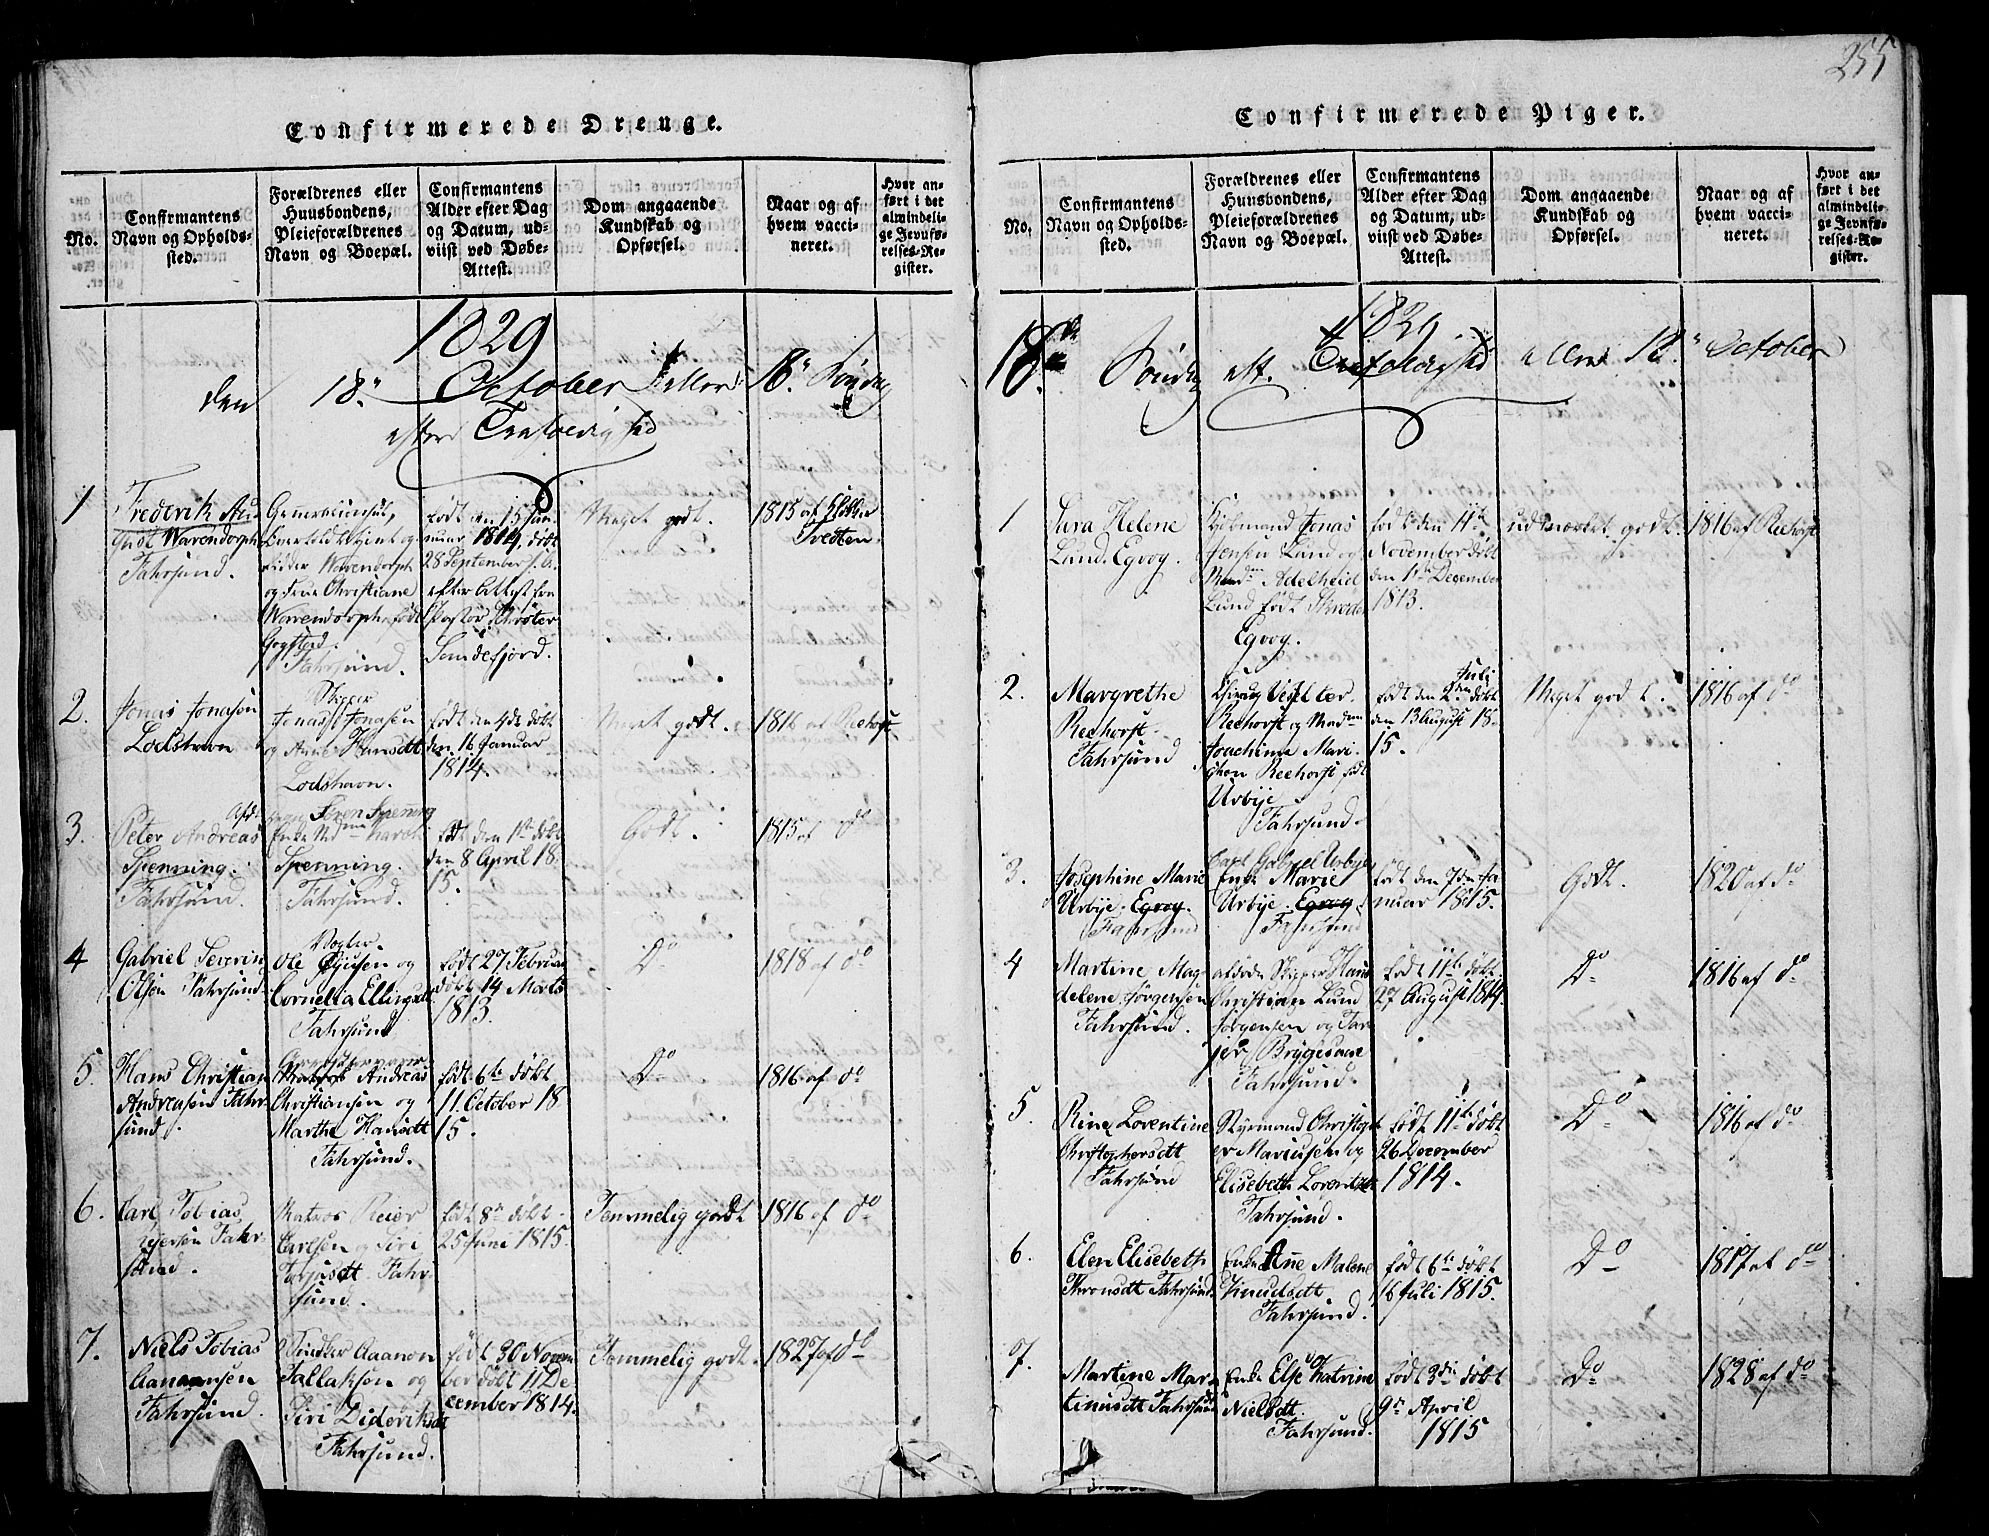 255
Confirmerede Drenge.
No.
Confirmantens
Navn og Opholds-
sted.
Forældrenes eller
Huusbondens,
Pleieforældrenes
Navn og Boepæl.
Confirmantens
Alder efter Dag
og Datum, ud-
viist ved Døbe-
Attest.
Dom angaaende
Kundskab og
Opførsel.
Naar og af
hvem vacci-
neret.
Hvor an-
ført i det
almindeli-
ge Jevnfø-
relses-Re-
gister.
1829
den 18. October eller 18. Søndag
efter Trefoldighed
1
Frederik Au-
gust Warendorph
Fahrsund.
Generalconsul,
og
Ridder Warendorph
og Frue Christiane
Warendorph, født
Fahrsund.
født den 15 Jan-
nuar 1814, døbt
28 September s. A.
efter Attest fra
Pastor Schrøter
Sandefjord.
Meget godt.
1815 af
Tvetten.
2.
Jonas Jonasen
Lodshavn
Skipper
Jonas Jonasen
og Anne Hansdt
Lodshavn.
født den 4de døbt
den 16 Januar
1814.
Meget godt.
1816 af Reehorst
3.
Peter Andreas
Spenning.
Fahrsund.
Afd. Søren Spenning
Enke Mdme
Spenning.
Fahrsund.
født den 1ste døbt
den 8 April 18-
15.
Godt.
1815 af do
4
Gabriel Severin
Olsen Fahrsund.
Ole og
Cornelia Ellingsdt
Fahrsund
født 27 Februar
døbt 14 Marts
1813.
Do
1818 af do
5.
Hans Christian
Andreasen Fahr-
sund.
Andreas
Christiansen og
Marthe Hansdt
Fahrsund.
født 6te døbt
11. October 18
15.
Do
1816 af do
6.
Carl Tobias
Reiersen Fahr-
sund.
Matros Reier
Carlsen og Siri
Torjusdt Fahr-
sund.
født 8de døbt
25 Juni 1815.
Temmelig godt
1816 af do
7.
Niels Tobias
Aanonsen
Fahrsund.
Snedker Aanon
Tallaksen og
Siri Dideriksdt
Fahrsund.
født 30 Novem
ber døbt 11 De
cember 1814.
Temmelig godt.
1827 af do
Confirmerede Piger.
No.
Confirmantens
Navn og Opholds-
sted.
Forældrenes eller
Huusbondens,
Pleieforældrenes
Navn og Boepæl.
Confirmantens
Alder efter Dag
og Datum, ud-
viist ved Døbe-
Attest.
Dom angaaende
Kundskab og
Opførsel.
Naar og af
hvem vacci-
neret.
Hvor an-
ført i det
almindelig-
ge Jevnfø-
relses-Re-
gister.
1829
18de Søndag eft. Trefoldighed eller 18. October
1
Sara Helene
Lund. Egvog.
Kjøbmand Jonas
Jensen Lund og
Madm Adelheid
Lund født Skrøder
Egvog.
født den 11te
November døbt
den 1ste December
1813.
udmærket godt.
1816 af Reehorst
2.
Margrethe
Reehorst
Fahrsund
Reehorst og Madm
Joachime Mari-
chen Reehorst født
Urbye
Fahrsund.
født den 2den Juli døbt
den 13 August 18-
15.
Meget godt.
1816 af do
3.
Josephine Marie
Urbye. Egvog.
Fahrsund
Carl Gabriel Urbyes
Enke Marie
Urbye. Egvog
Fahrsund
født den 7de Ja
nuar 1815.
Godt.
1820 af do
4
Martine Mag-
delene Jørgensen
Fahrsund.
afdøde Skipper Hans
Christian Lund
Jørgensen og Tar
jer Bryggesaae
Fahrsund.
født 11te døbt
27 August 1814.
Do
1816 af do
5.
Rine Lorentine
Christophersdt
Fahrsund
Styrmand Christoph
er Mariusen og
Elisabeth Lorentzdt
Fahrsund.
født 11te døbt
26 December
1814.
Do
1816 af do
6.
Elen Elisebeth
Thronsdt Fahrsund.
Enke Ane Malene
Knudsdt
Fahrsund.
født 6te døbt
16 Juli 1815.
Do
1817 af do
7.
Martine Mar-
tinusdt Fahrsund
Enke Else Katrine
Nielsdt.
Fahrsund.
født 3die døbt
9de April
1815
Do
1828 af do